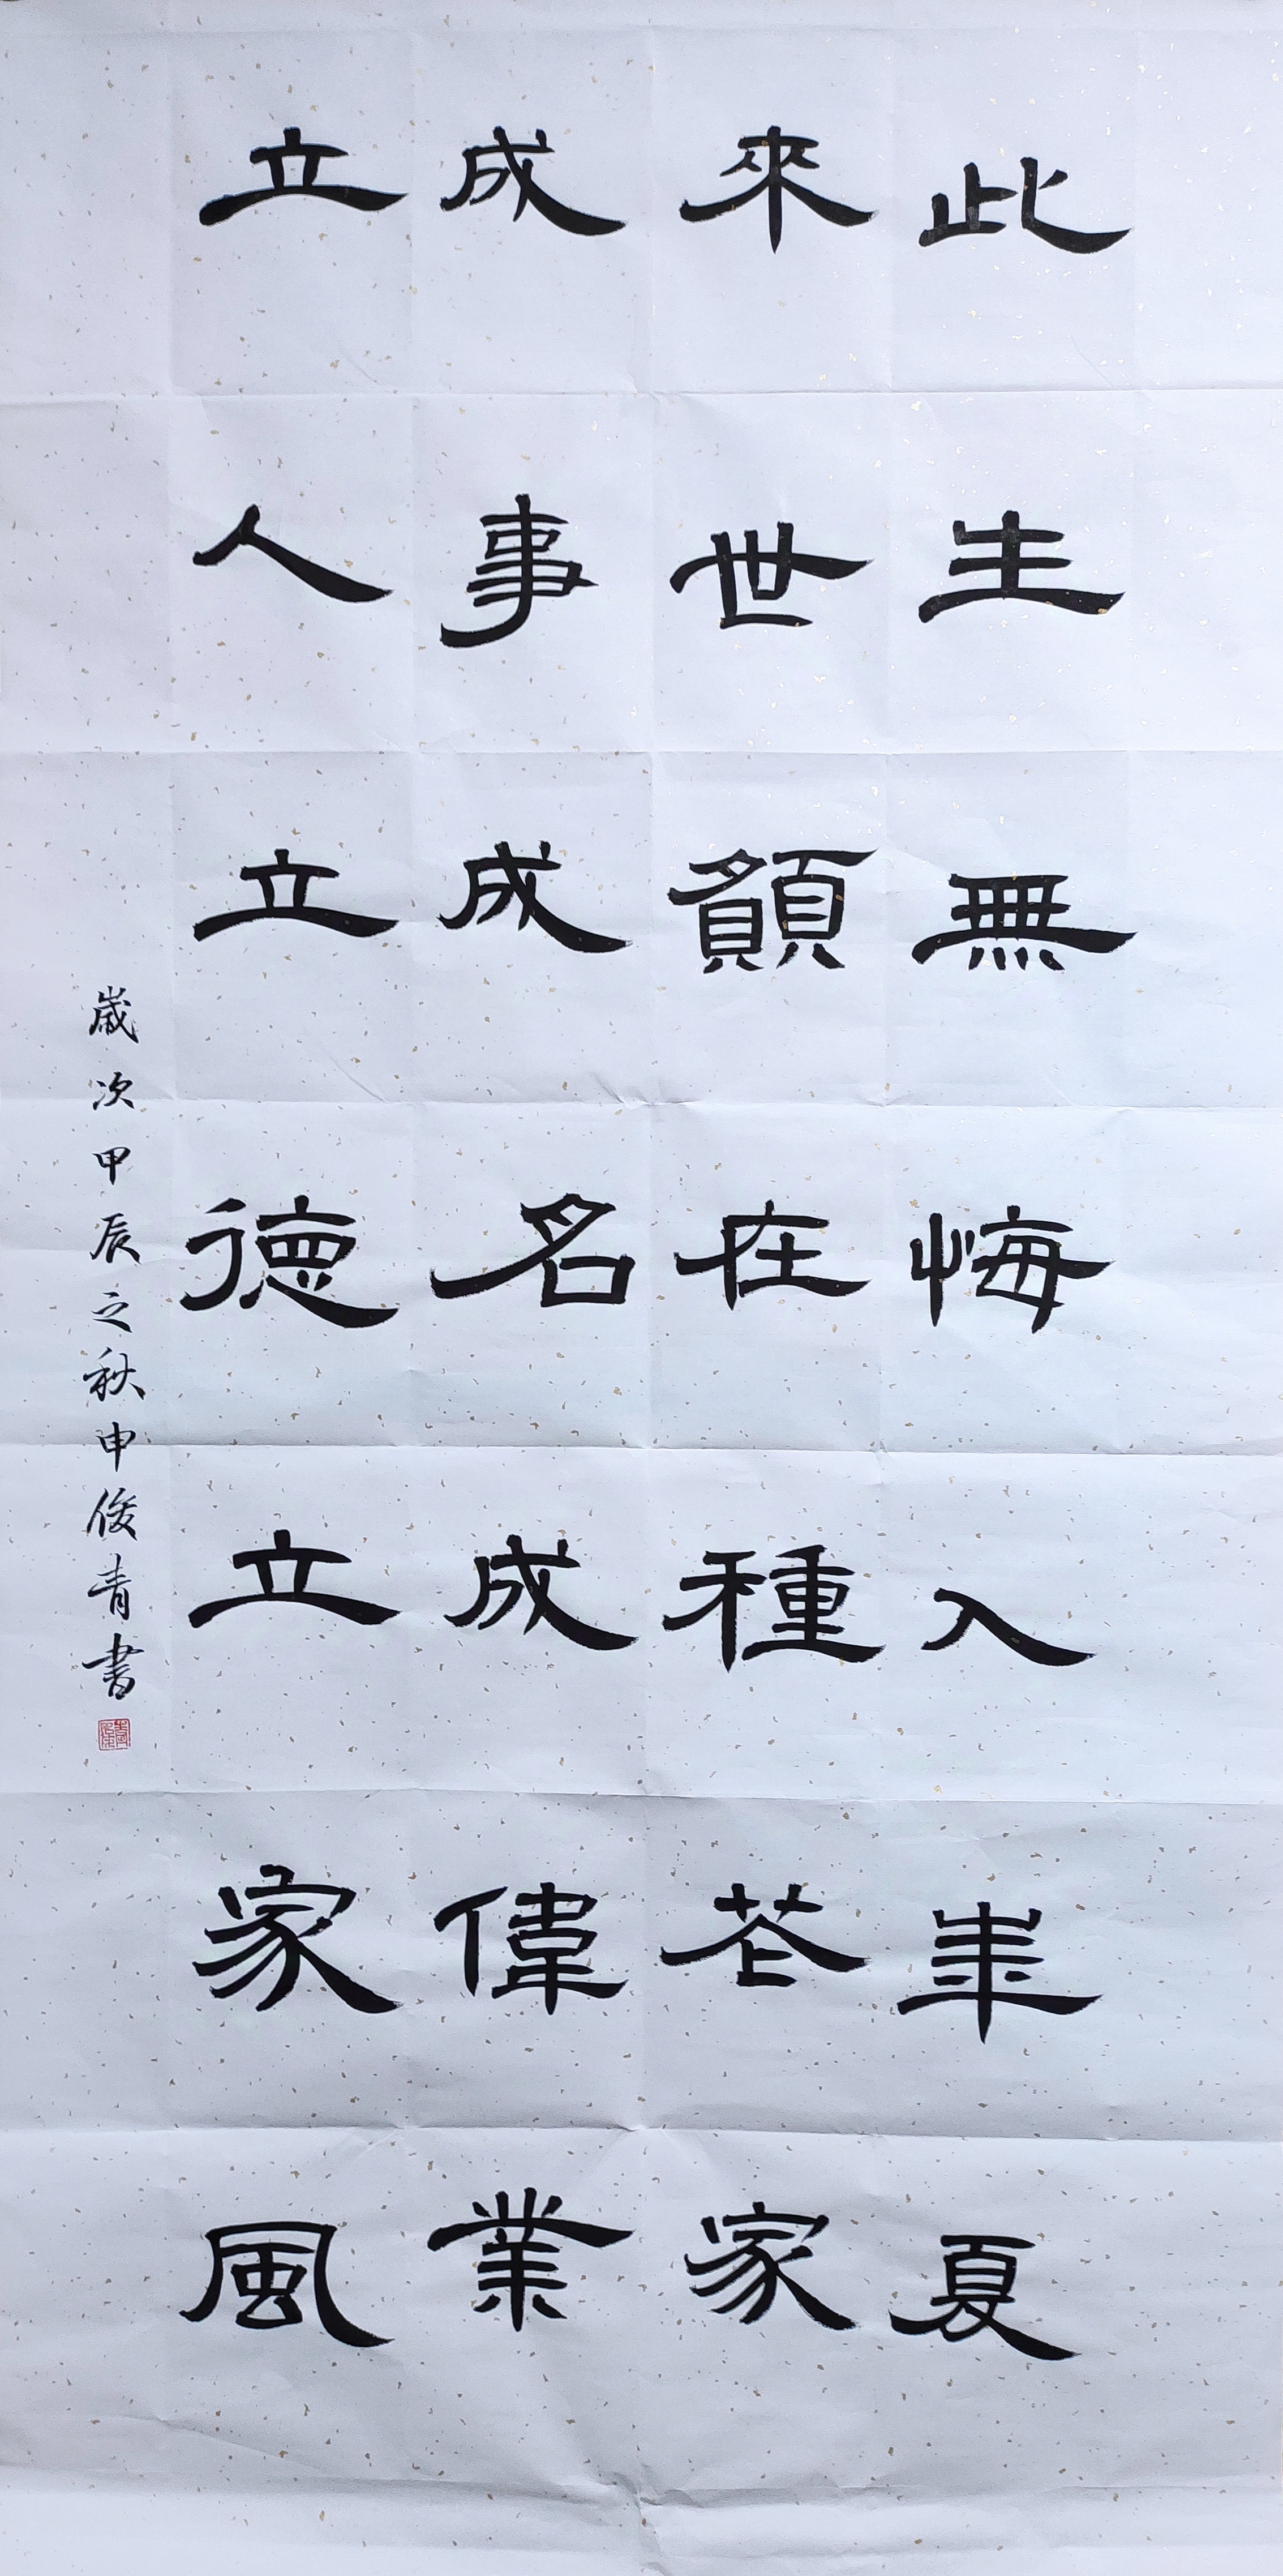 此生無悔入華夏
來世願在種花家
成事成名成偉業
立人立德立家風
歲次甲辰之秋申俊青書